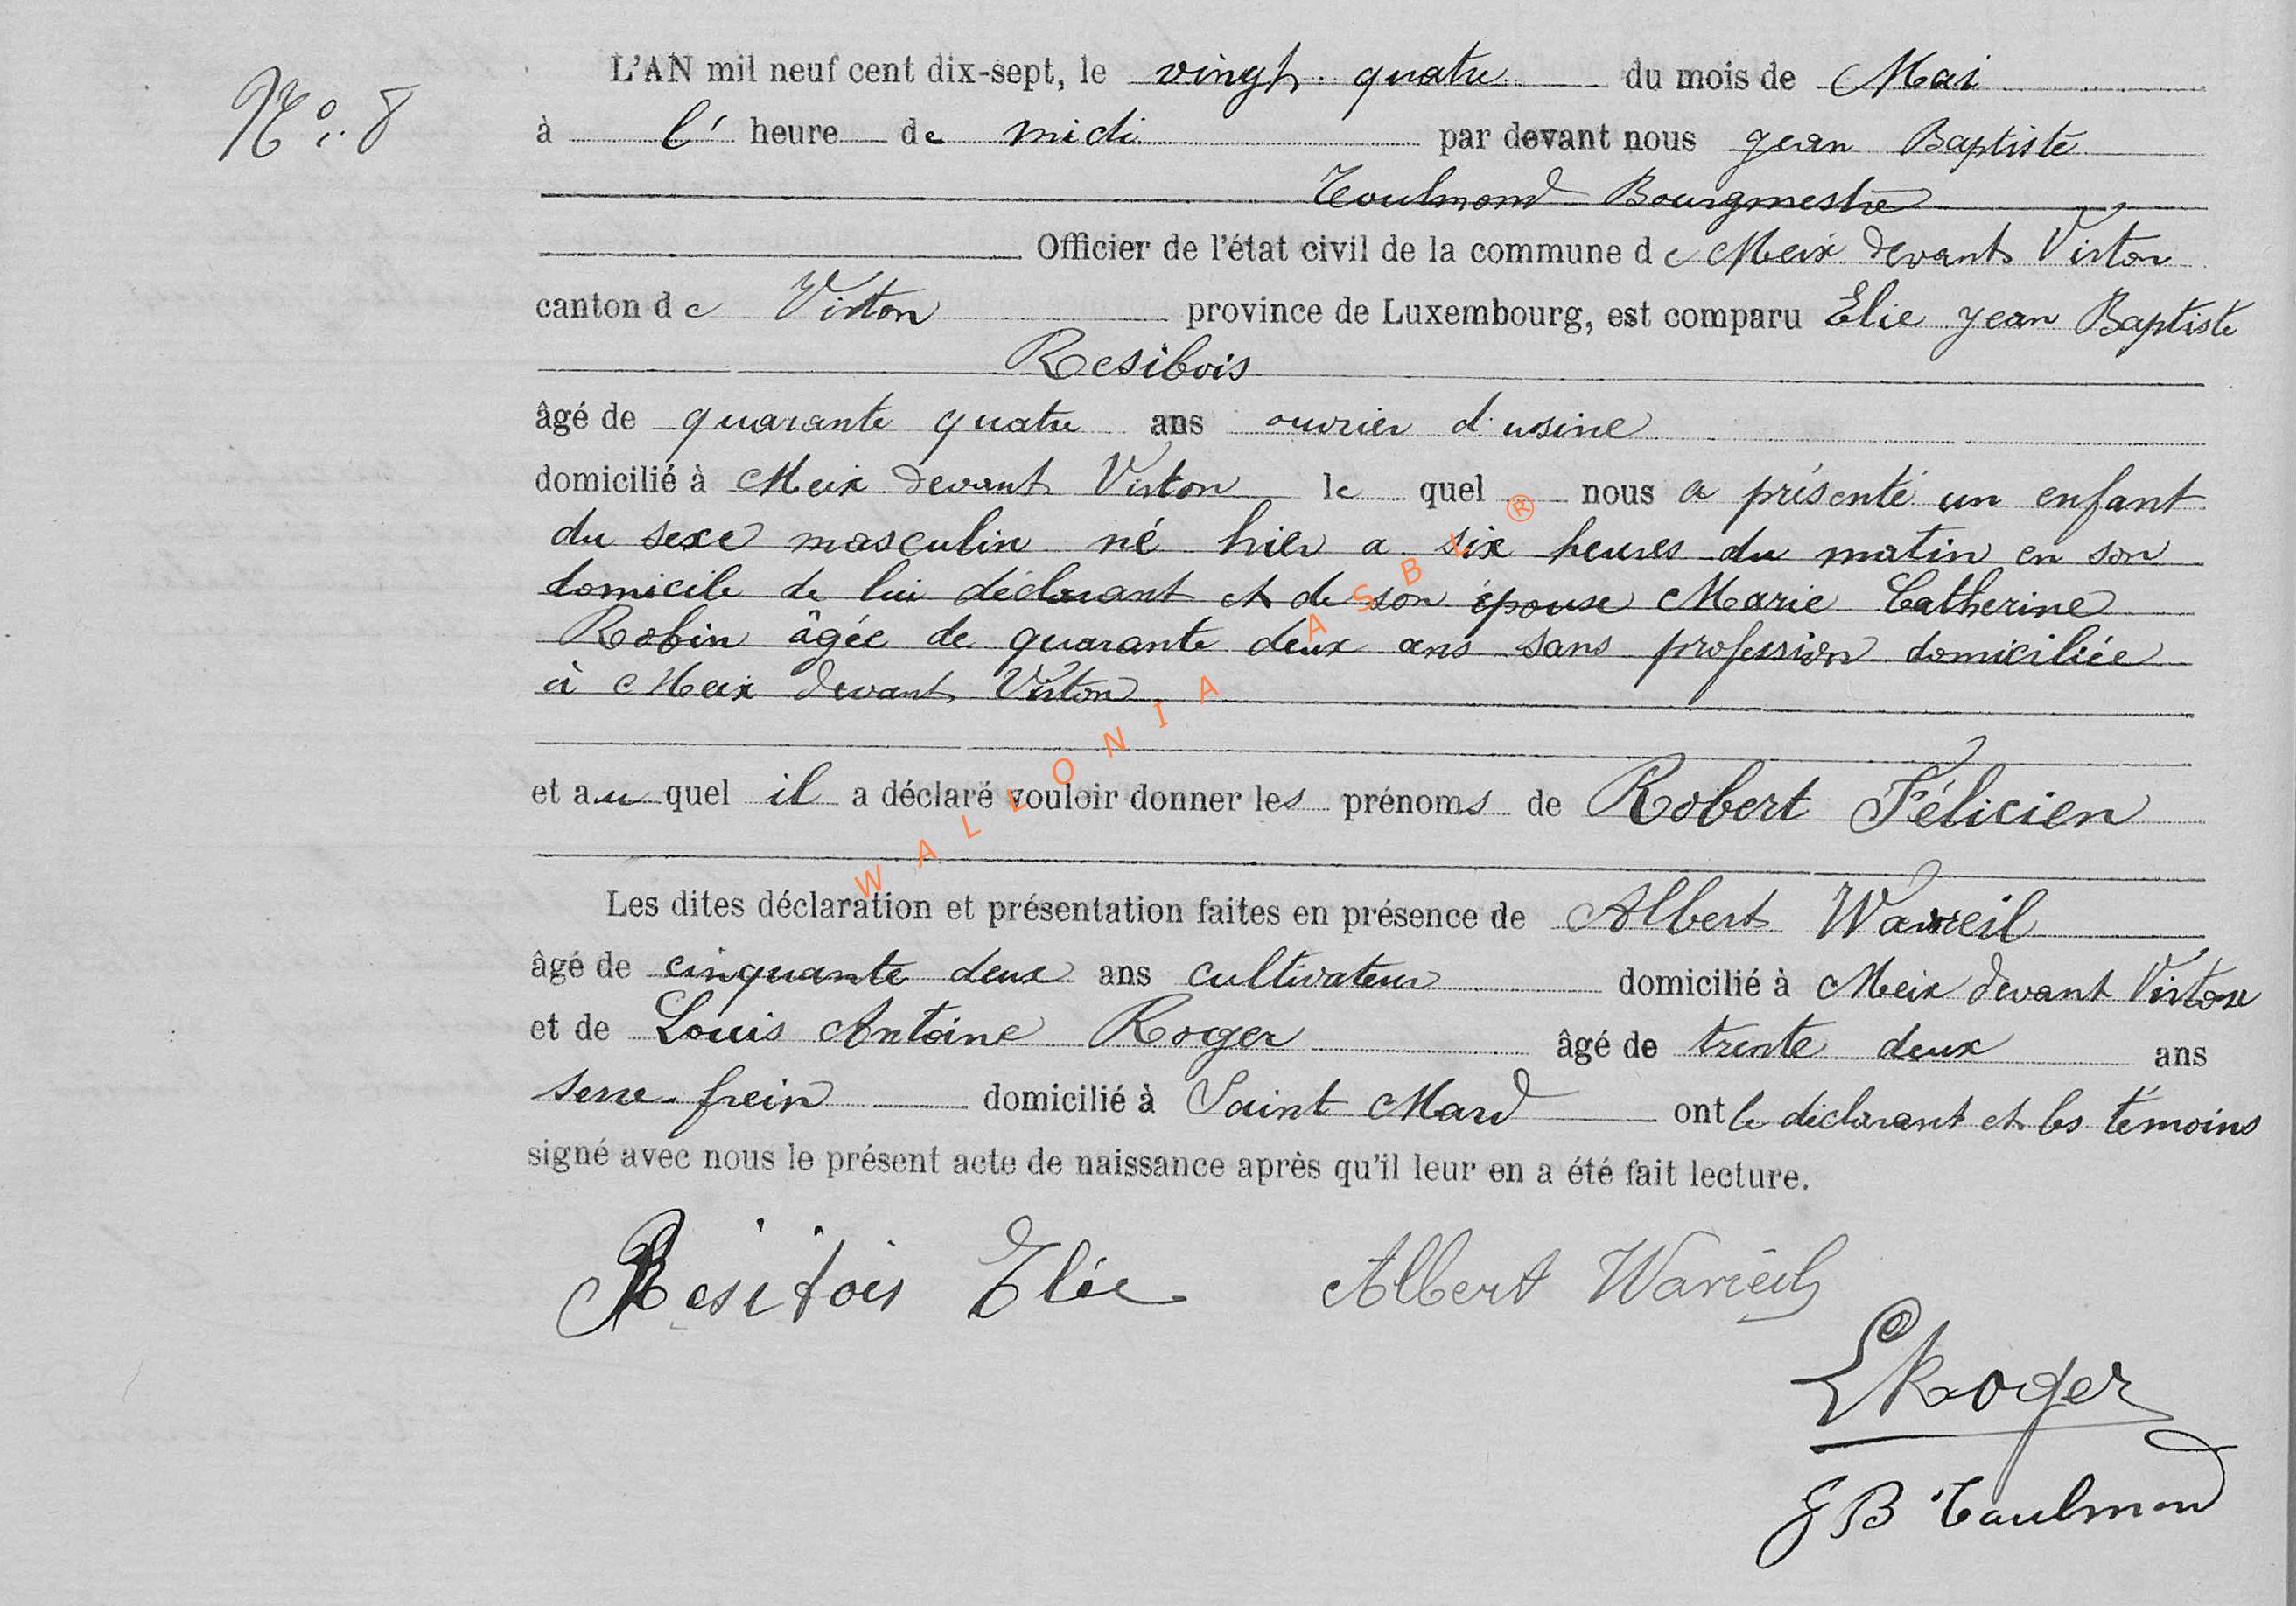 N°. 8
L'AN mil neuf cent dix-sept, le vingt quatre du mois de Mai
à l' heure de midi par devant nous jean Baptiste
Toulmond Bourgmestre
Officier de l'état civil de la commune de Meix devant Virton
canton de Virton province de Luxembourg, est comparu Elie jean Baptiste
Resibois
âgé de quarante quatre ans ouvrier d'usine
domicilié à Meix devant Virton le quel nous a présenté un enfant
du sexe masculin né hier a six heures du matin en son
domicile de lui déclarant et de son épouse Marie Catherine
Robin âgée de quarante deux ans sans profession domiciliée
à Meix devant Virton
et au quel il a déclaré vouloir donner les prénoms de Robert Félicien
Les dites déclaration et présentation faites en présence de Albert Warreil
âgé de cinquante deux ans cultivateur domicilié à Meix devant Virton
et de Louis Antoine Roger âgé de trente deux ans
serre-frein domicilié à Saint Mard ont le déclarant et les témoins
signé avec nous le présent acte de naissance après qu'il leur en a été fait lecture.
Resibois Elie Albert Warieil
L Roger
J B Toulmond
WALLONIA ASBL ®